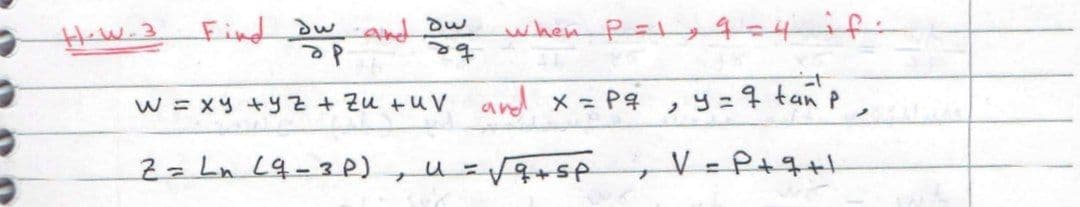 H.W.3 Find ∂w/∂p and ∂w/∂q when P=1, q=4 if:
w = xy + yz + zu + uv and x = Pq, y = q tan⁻¹ P,
z = Ln (q-3P), u = √(q+5P), V = P+q+1